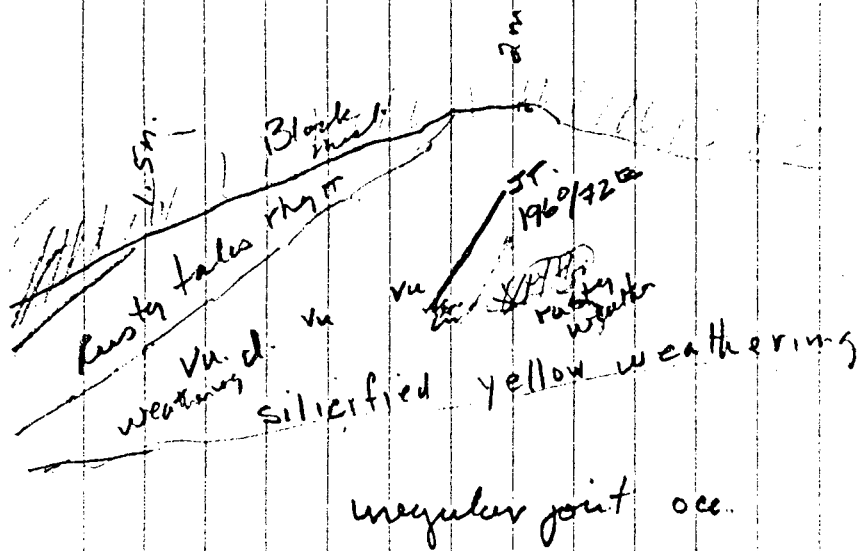 2m
1.5m.
Black
JT.
196°/72
Rusty talus rhy π
Vu. d. Vu Vu
weathering
rusty
weather
silicified yellow weathering
irregular joint occ.